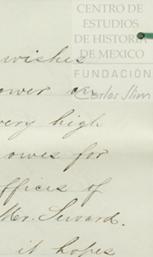 CENTRO DE
ESTUDIOS
DE HISTORIA
DE MEXICO
FUNDACIÓN
Carlos Slim
wishes
ower
very high
owes for
offices of
Mr. Seward.
it hopes